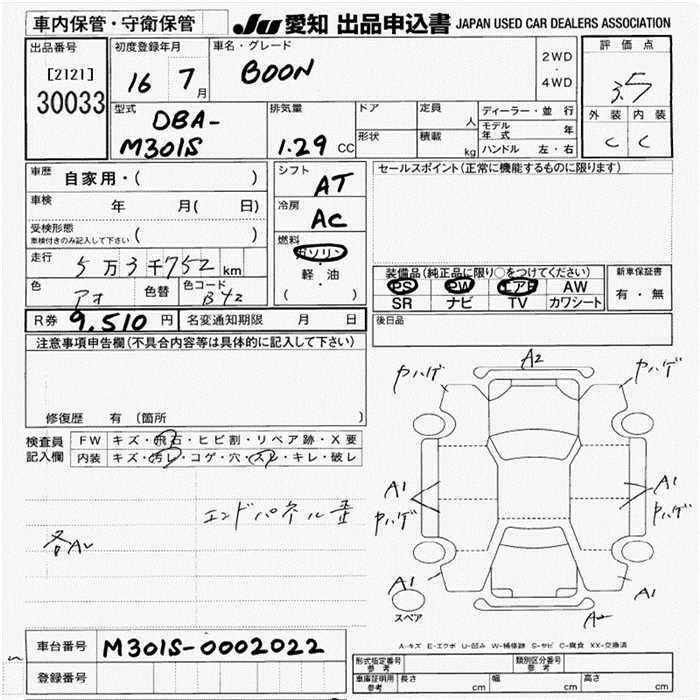 車内保管・守衛保管
JU 愛知 出品申込書 JAPAN USED CAR DEALERS ASSOCIATION
出品番号
[2121]
30033
初度登録年月
16 7月
車名・グレード
BOON
2WD
・
4WD
評価点
3.5
外装 内装
C C
型式
DBA-
M301S
排気量
1.29 CC
ドア
形状
定員 人
積載 kg
ディーラー・並行
モデル年式 年
ハンドル 左・右
車歴 自家用・( )
車検 年 月( 日)
受検形態
車検付きのみ記入して下さい ( )
走行 5万3千752km
色 アオ 色替 色コード B42
R券 9,510円 名変通知期限 月 日
シフト AT
冷房 AC
燃料
ガソリン
・
軽・油
( )
セールスポイント(正常に機能するものに限ります)
装備品(純正品に限り○をつけてください)
PS PW エアB AW
SR ナビ TV カワシート
新車保証書
有・無
後日品
注意事項申告欄(不具合内容等は具体的に記入して下さい)
修復歴 有 (箇所 )
検査員
記入欄
FW キズ・飛石・ヒビ割・リペア跡・X要
内装 キズ・汚レ・コゲ・穴・スレ・キレ・破レ
エンドパネル歪
各AV
ヤハゲ A2 ヤハゲ
A1 A1
ヤハゲ ヤハゲ
A1 A1
スペア A2
A-キズ E-エクボ U-凹み W-補修跡 S-サビ C-腐食 XX-交換済
車台番号 M301S-0002022
登録番号
形式指定番号
参考
類別区分番号
参考
車庫証明用
参考
長さ cm 幅 cm 高さ cm